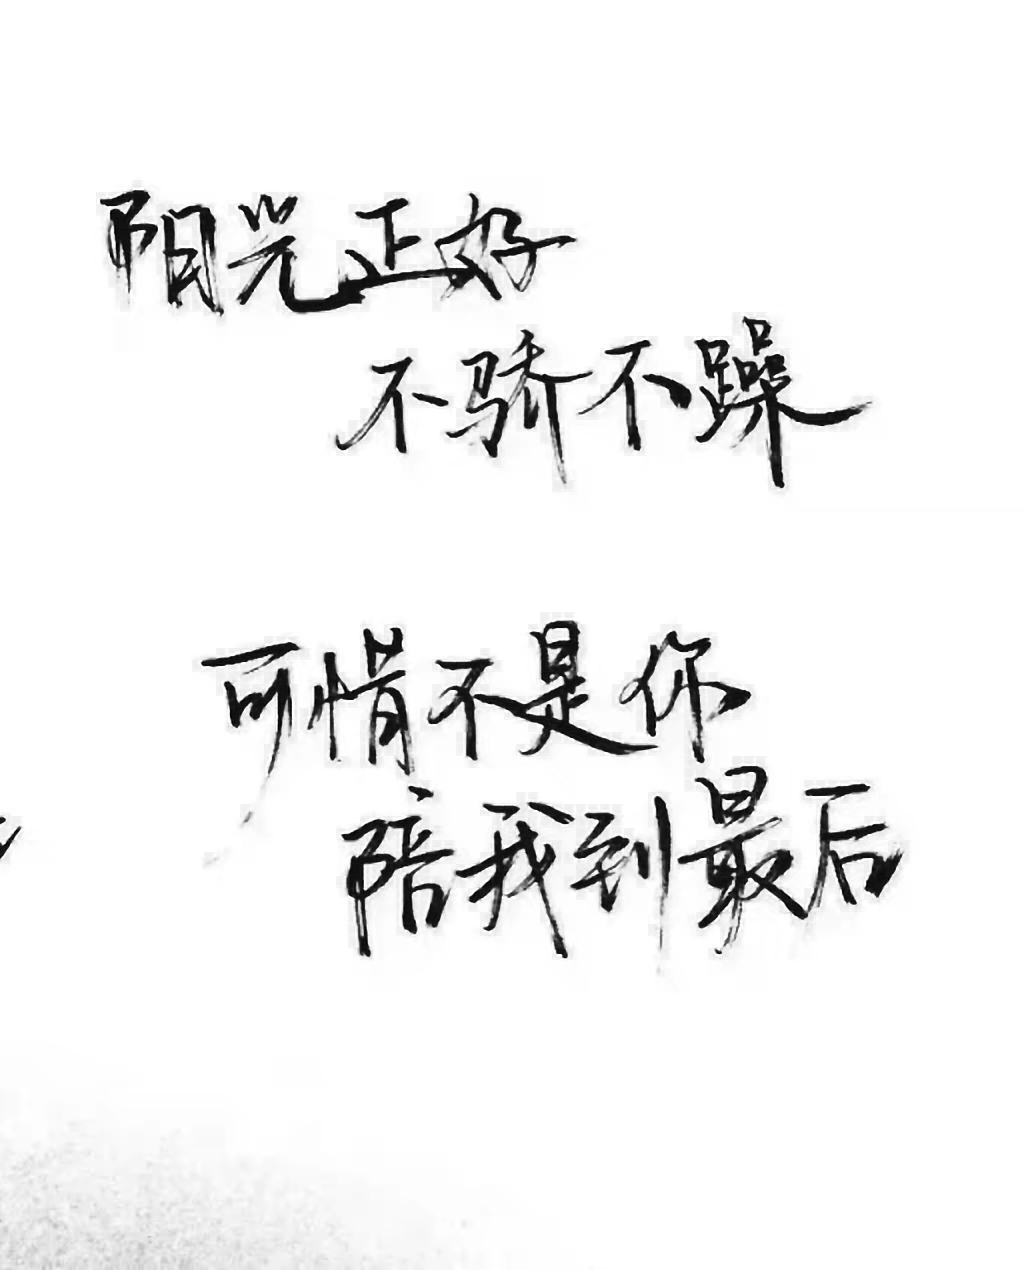 阳光正好
不骄不躁
可惜不是你
陪我到最后